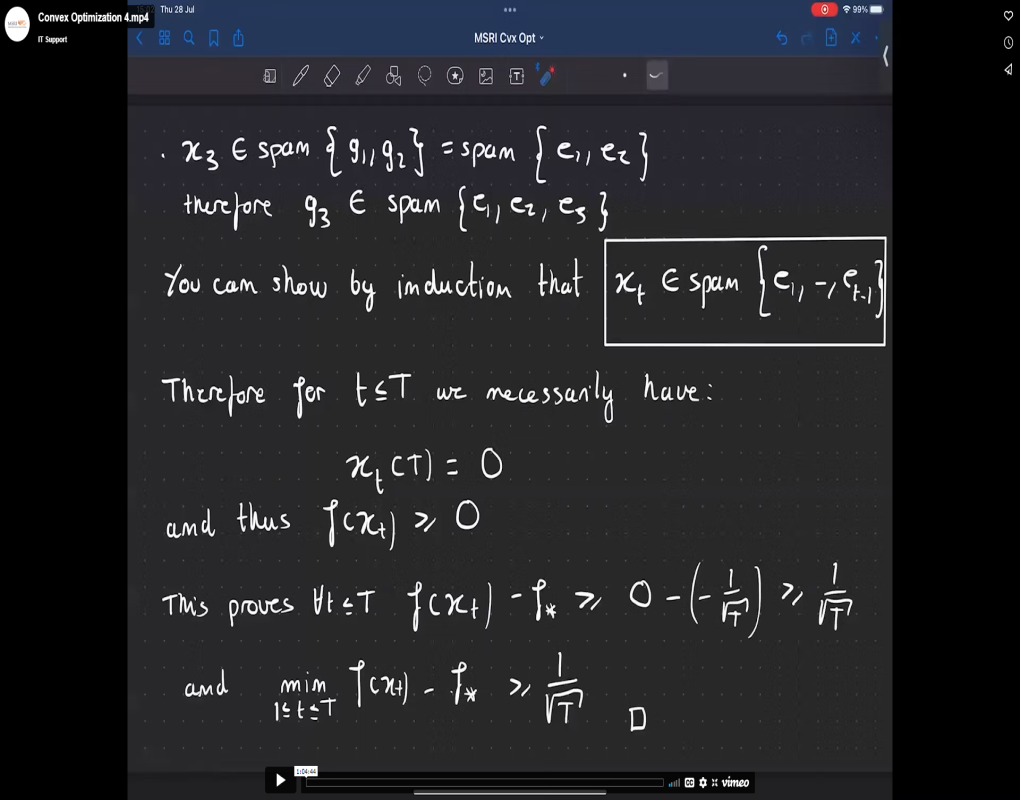 Convex Optimization 4.mp4
IT Support
Thu 28 Jul
99%
MSRI Cvx Opt
. x₃ ∈ span {g₁, g₂} = span {e₁, e₂}
therefore g₃ ∈ span {e₁, e₂, e₃}
You can show by induction that x_t ∈ span {e₁, -, e_{t-1}}
Therefore for t ≤ T we necessarily have:
x_t (T) = 0
and thus f(x_t) ≥ 0
This proves ∀t ≤ T f(x_t) - f_* ≥ 0 - (- 1/√T) ≥ 1/√T
and min_{1≤t≤T} f(x_t) - f_* ≥ 1/√T □
1:04:44
CC vimeo